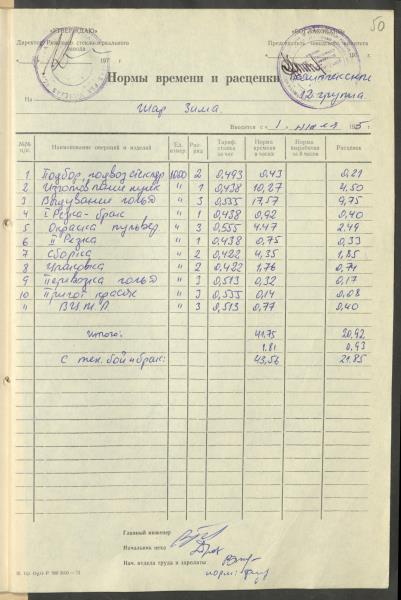 50
"УТВЕРЖДАЮ"
Директор
завода
197 г.
"СОГЛАСОВАНО"
Председатель заводского комитета
Нормы времени и расценки
12 группа
На Шар Зима.
Вводится с «1. июля 1975 г.
№№ п/п Наименование операций и изделий Ед. измер. Раз-ряд Тариф. ставка за час Норма времени в часах Норма выработки за 8 часов Расценок
1 Подбор, подвоз 1000 2 0,493 0,43 0,21
2 " 1 0,438 10,27 4.50
3 Выдувание " 3 0.555 17.57 9,75
4 I Резка-брак " 1 0,438 0,92 0,40
5 Окраска пульвер " 3 0,555 4.47 2.49
6 II Резка " 1 0,438 0,75 0,33
7 Сборка " 2 0,422 4,35 1,85
8 Упаковка " 2 0,422 1,76 0,74
9 Перевозка " 3 0,513 0,32 0,17
10 Пригот. красок " 3 0,555 0,14 0,08
11 " 3 0,513 0,77 0,40
Итого: 41.75 20,92
1.81 0,93
С тех. бой и брак: 43,56 21.85
Главный инженер
Начальник цеха
Нач. отдела труда и зарплаты